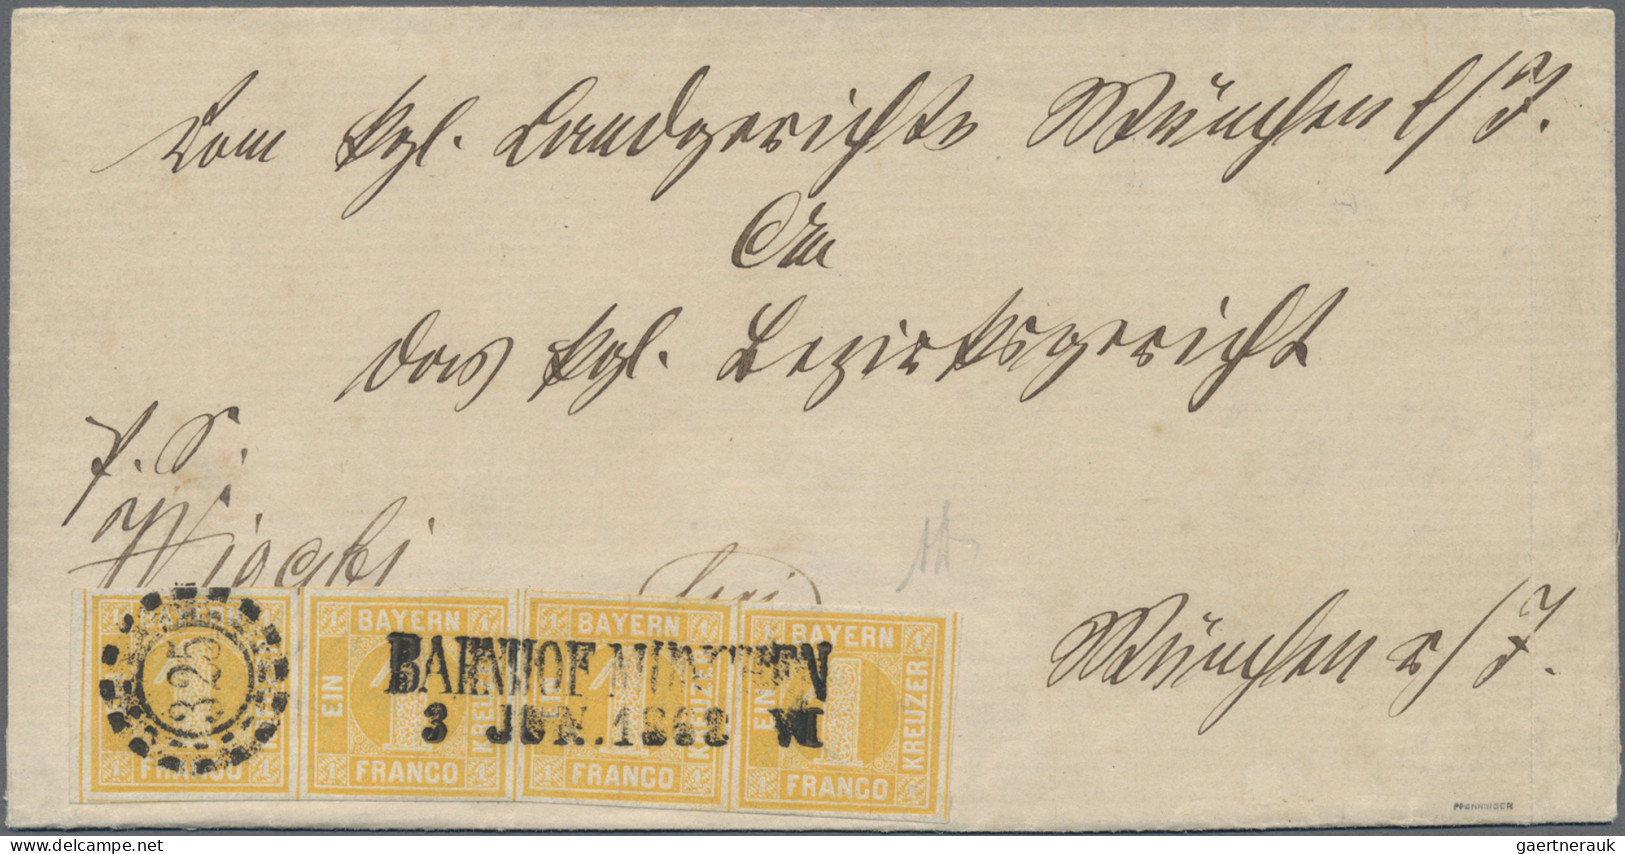 Vom kgl. Landgerichte München l/I.
An
das kgl. Bezirksgericht
P. S.
frei
München r/I.
325
BAYERN
EIN
KREUZER
FRANCO
1
BAYERN
EIN
KREUZER
FRANCO
1
BAYERN
EIN
KREUZER
FRANCO
1
BAYERN
EIN
KREUZER
FRANCO
1
BAHNHOF MÜNCHEN
3 JUN. VI
PFENNINGER
gaertnerauk